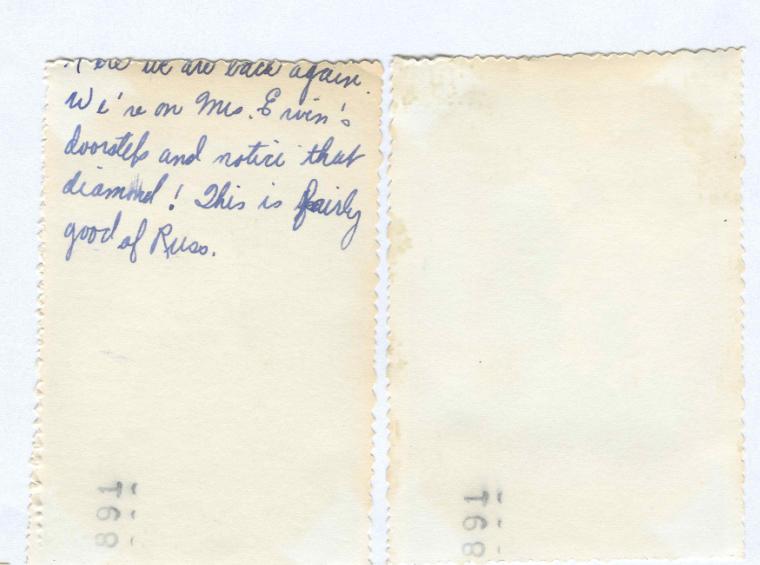 Here we are back again.
We're on Mrs. Ervin's
doorsteps and notice that
diamond! This is fairly
good of Russ.
891
891